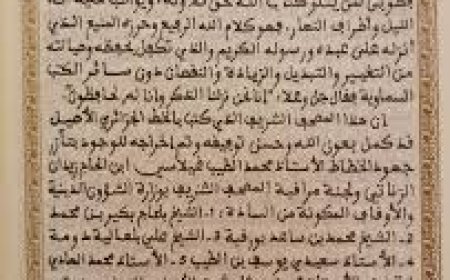 فطوبى لمن يتلو كتاب الله حق تلاوته
الليل وأطراف النهار، فهو كلام الله الرفيع وحرزه المنيع الذي
أنزله على عبده ورسوله الكريم والذي تكفل بحفظه وصيانته
من التغيير والتبديل والزيادة والنقصان دون سائر الكتب
السماوية فقال جل وعلا: "إنا نحن نزلنا الذكر وإنا له لحافظون".
إن هذا المصحف الشريف الذي كتب بالخط الجزائري الأصيل
قد كمل بعون الله وحسن توفيقه وتم إخراجه للوجود بتآزر
جهود الخطاط الأستاذ محمد الطيب ابن الحاج زيدان
الزناتي ولجنة مراقبة المصحف الشريف بوزارة الشؤون الدينية
والأوقاف المكونة من السادة: 1ـ الشيخ بلعام بكير بن محمد
2ـ الشيخ محمد بن ساعد بورقبة 3ـ الشيخ علي بلعالية دومة
4ـ الأستاذ سعيدي يوسف بن الطيب 5ـ الأستاذ محمد الهادي